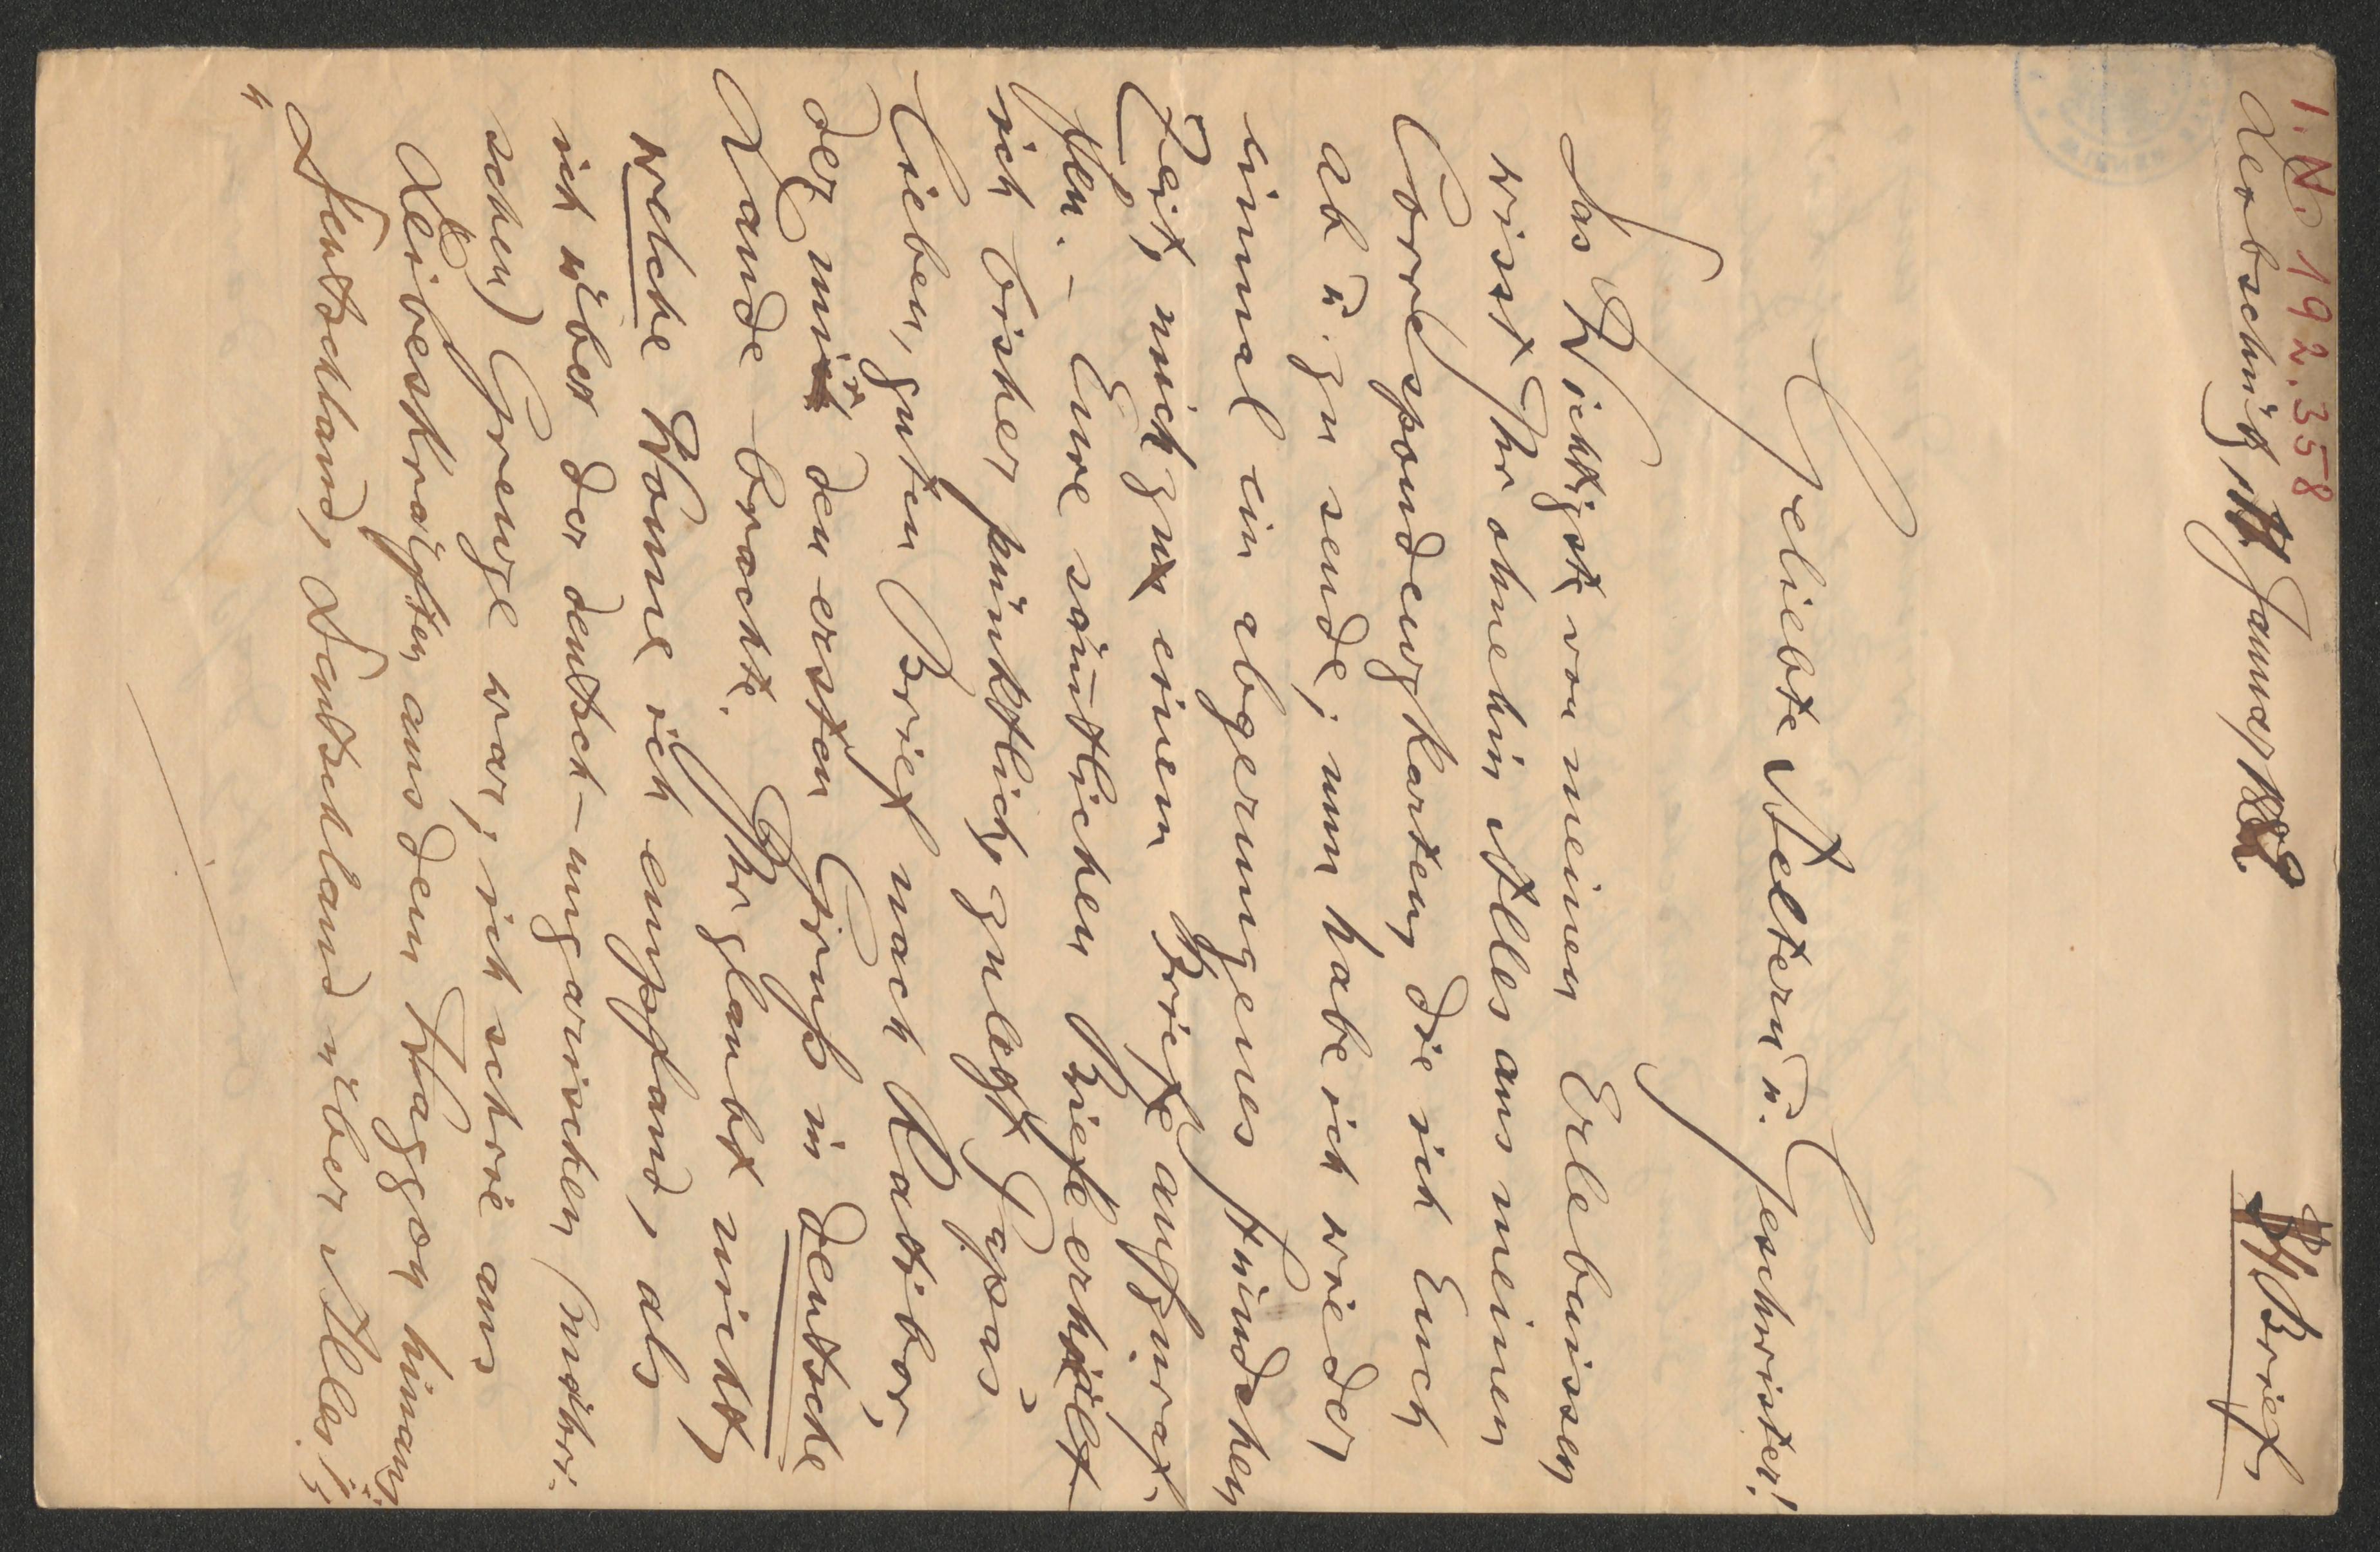 I. N. 192.358
Leobschütz, 11. Januar 1882.
4. Brief.
Geliebte Aeltern u. Geschwister!
Das Wichtigste von meinen Erlebnissen
wisst Ihr ohnehin Alles aus meinen
Correspondenzkarten, die ich Euch
ab u. zu sende; nun habe ich wieder
einmal ein abgerungenes Stündchen
Zeit, mich zu einem Briefe aufzuraf-
fen. – Eure sämtlichen Briefe erhielt
ich bisher pünktlich, zuletzt Papas
lieben, guten Brief nach Ratibor,
der mir den ersten Gruß in deutsche
Lande brachte. Ihr glaubt nicht,
welche Wonne ich empfand, als
ich über der deutsch-ungarischen (mähri-
schen) Grenze war; ich schrie aus
Leibeskräften aus dem Waggon hinaus:
„Deutschland, Deutschland über Alles!“